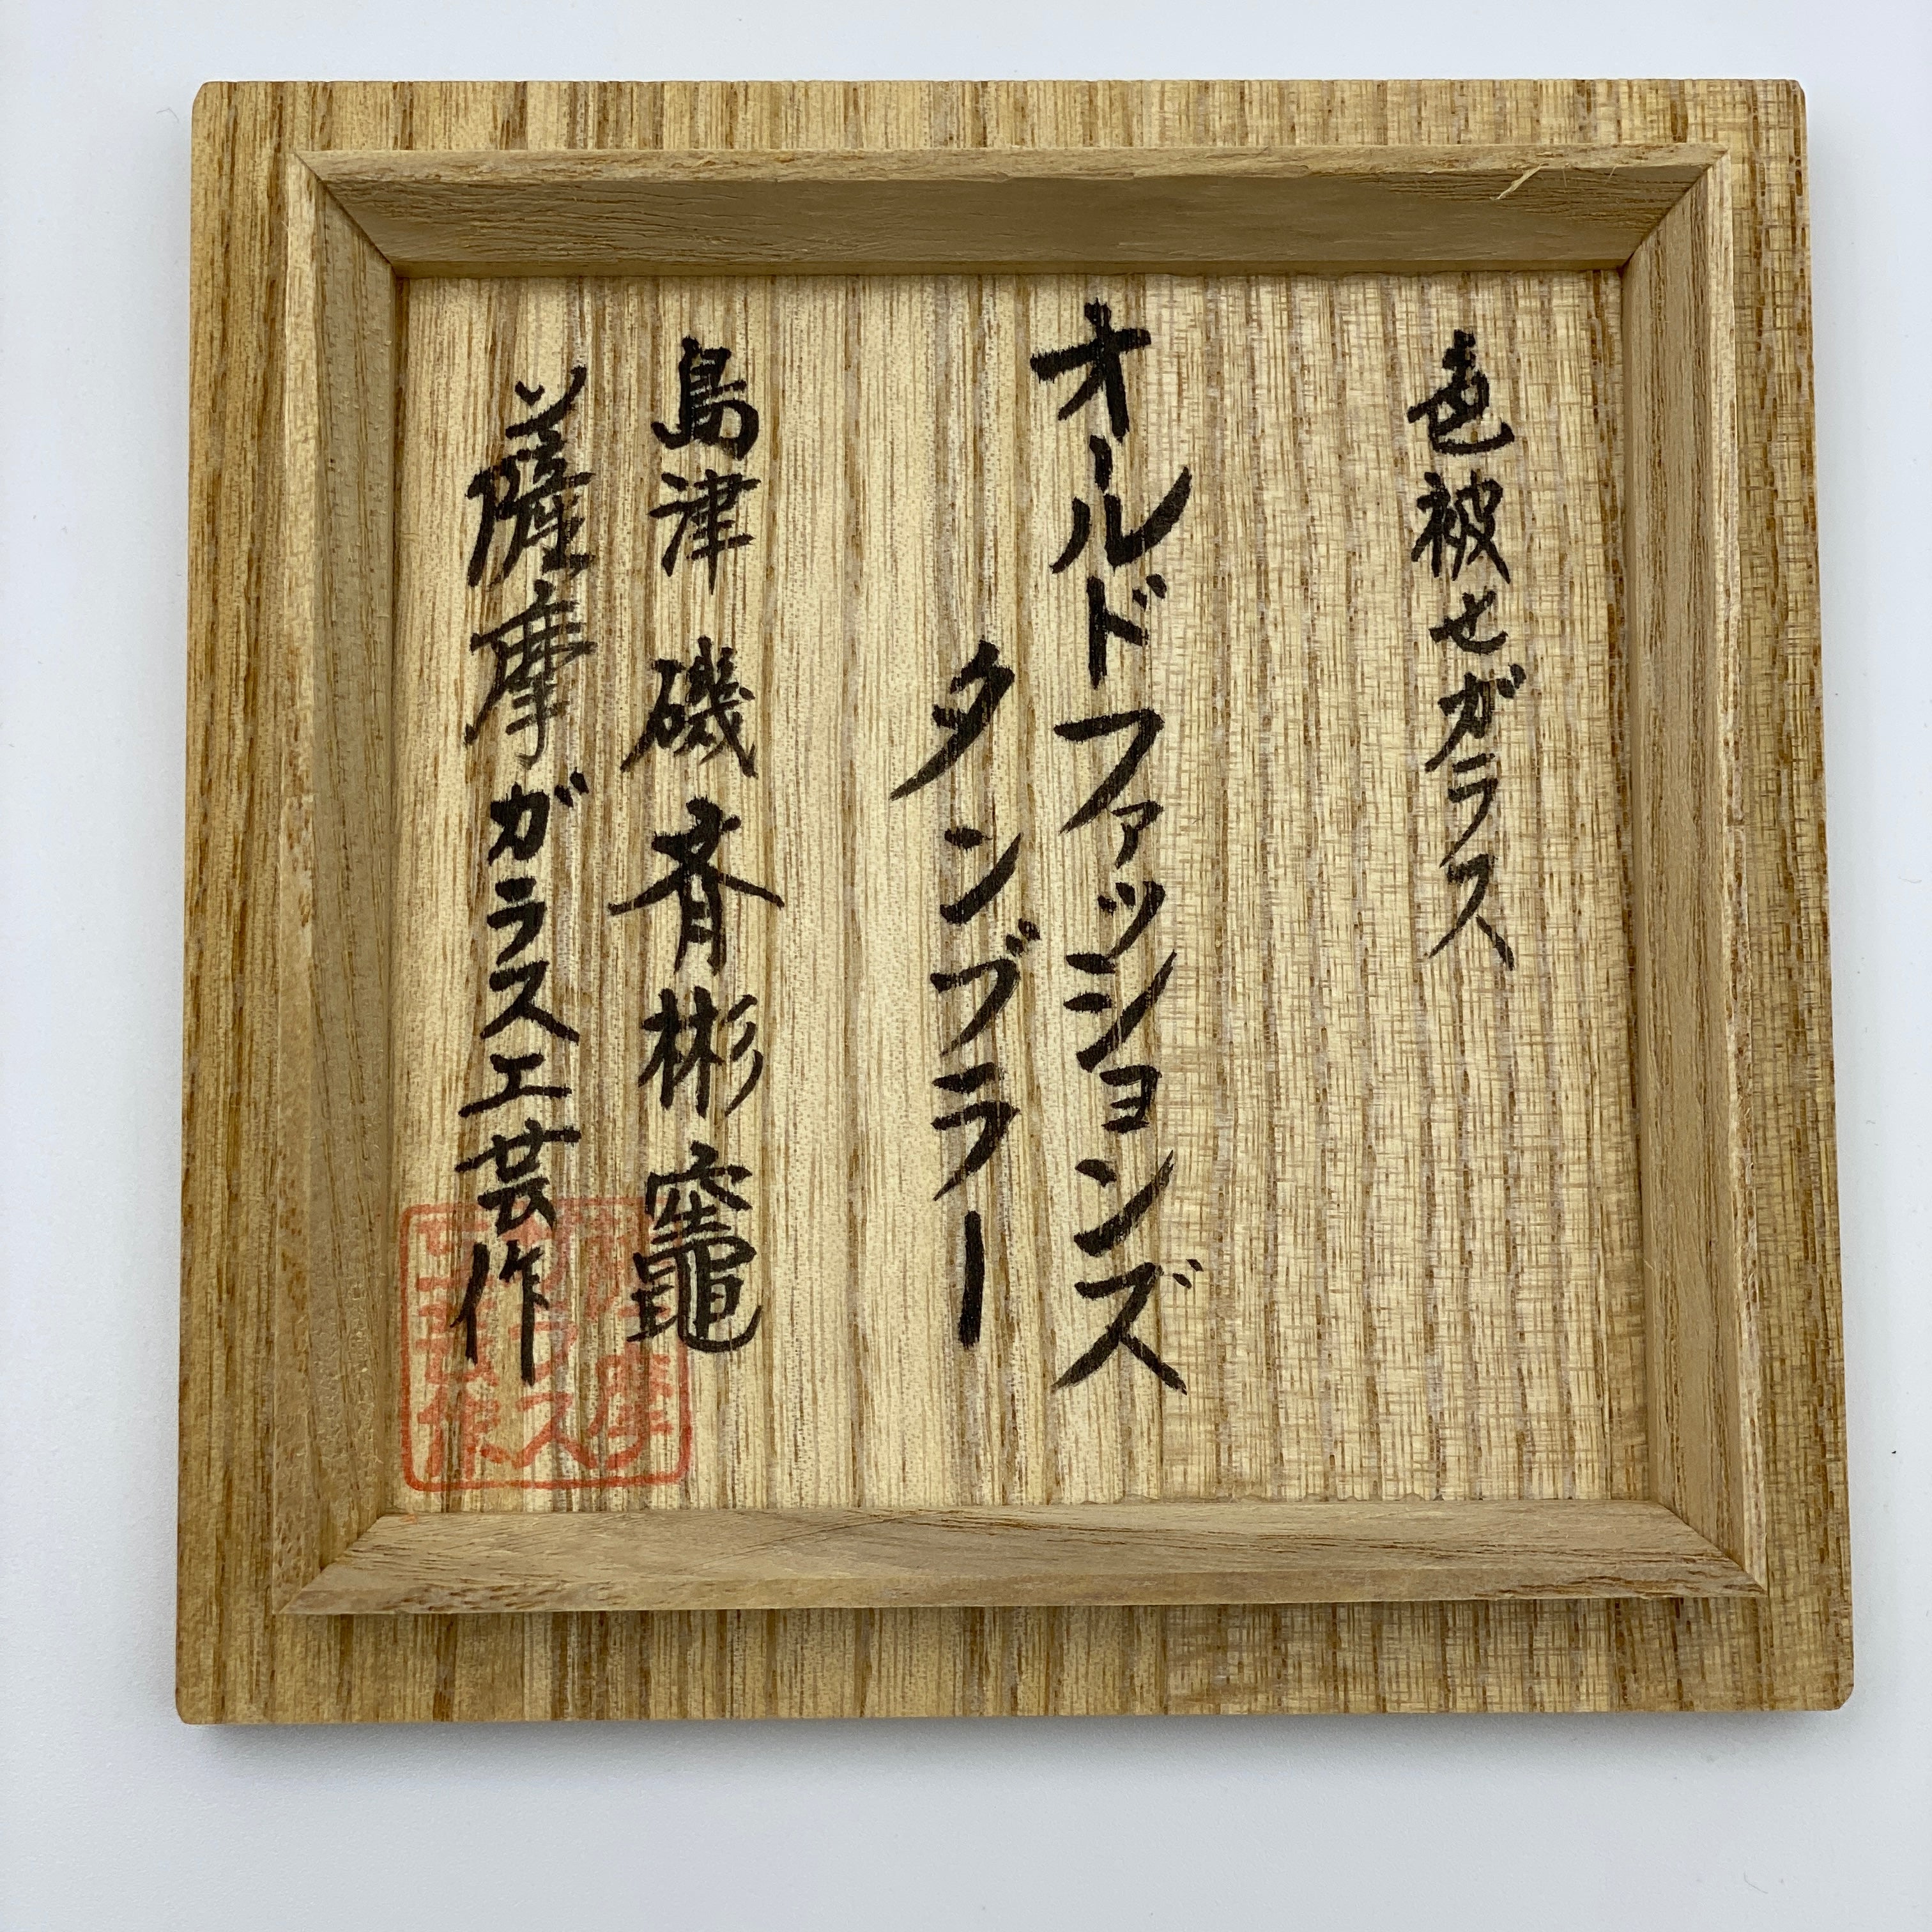 色被せガラス
オールドファッションズ
タンブラー
島津 磯 斉彬竈
薩摩ガラス工芸作
薩摩
ガラス
工芸作